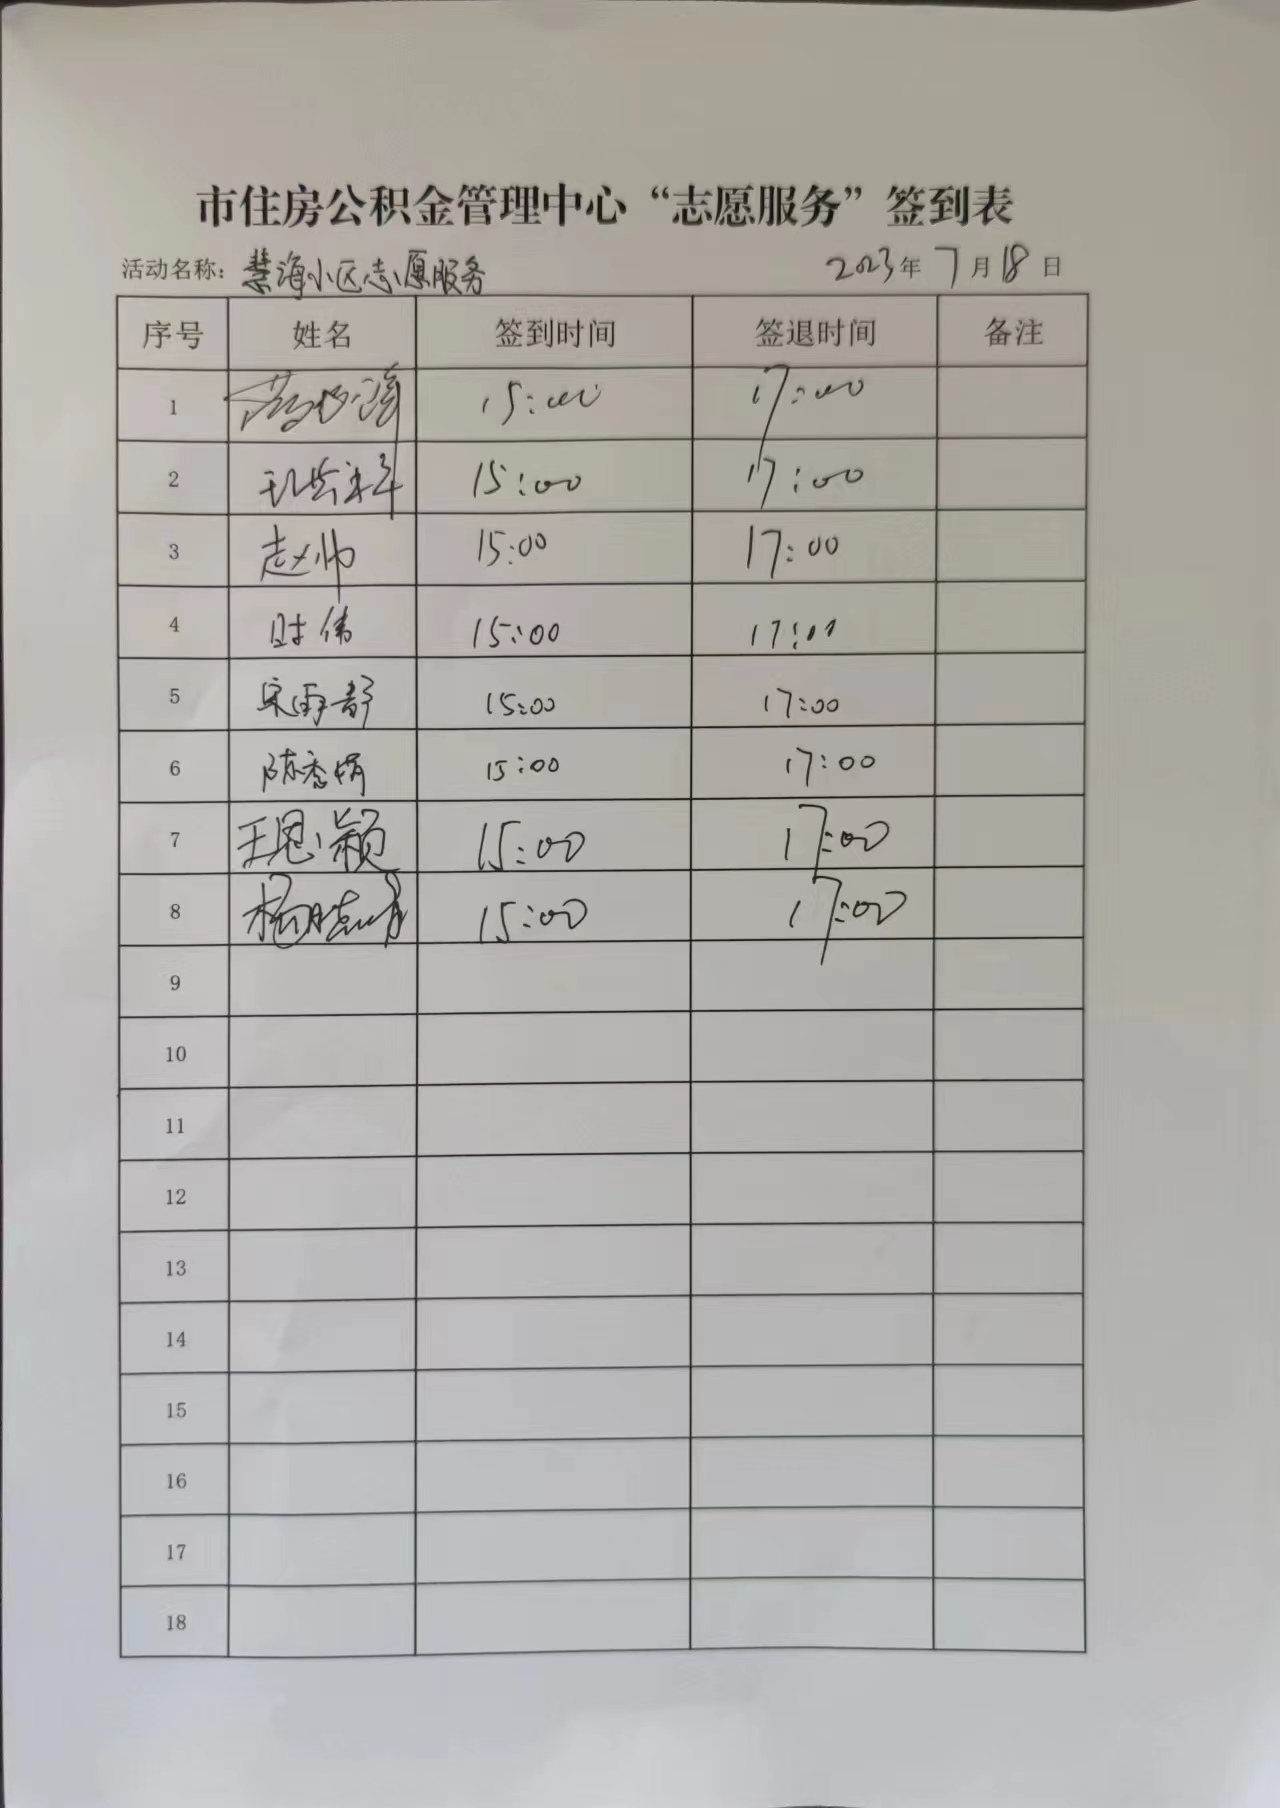 市住房公积金管理中心“志愿服务”签到表
活动名称：慧海小区志愿服务 2023年7月18日
序号 姓名 签到时间 签退时间 备注
1 15:00 17:00
2 15:00 17:00
3 赵帅 15:00 17:00
4 时伟 15:00 17:00
5 宋雨 15:00 17:00
6 陈秀娟 15:00 17:00
7 王思颖 15:00 17:00
8 杨晓 15:00 17:00
9
10
11
12
13
14
15
16
17
18